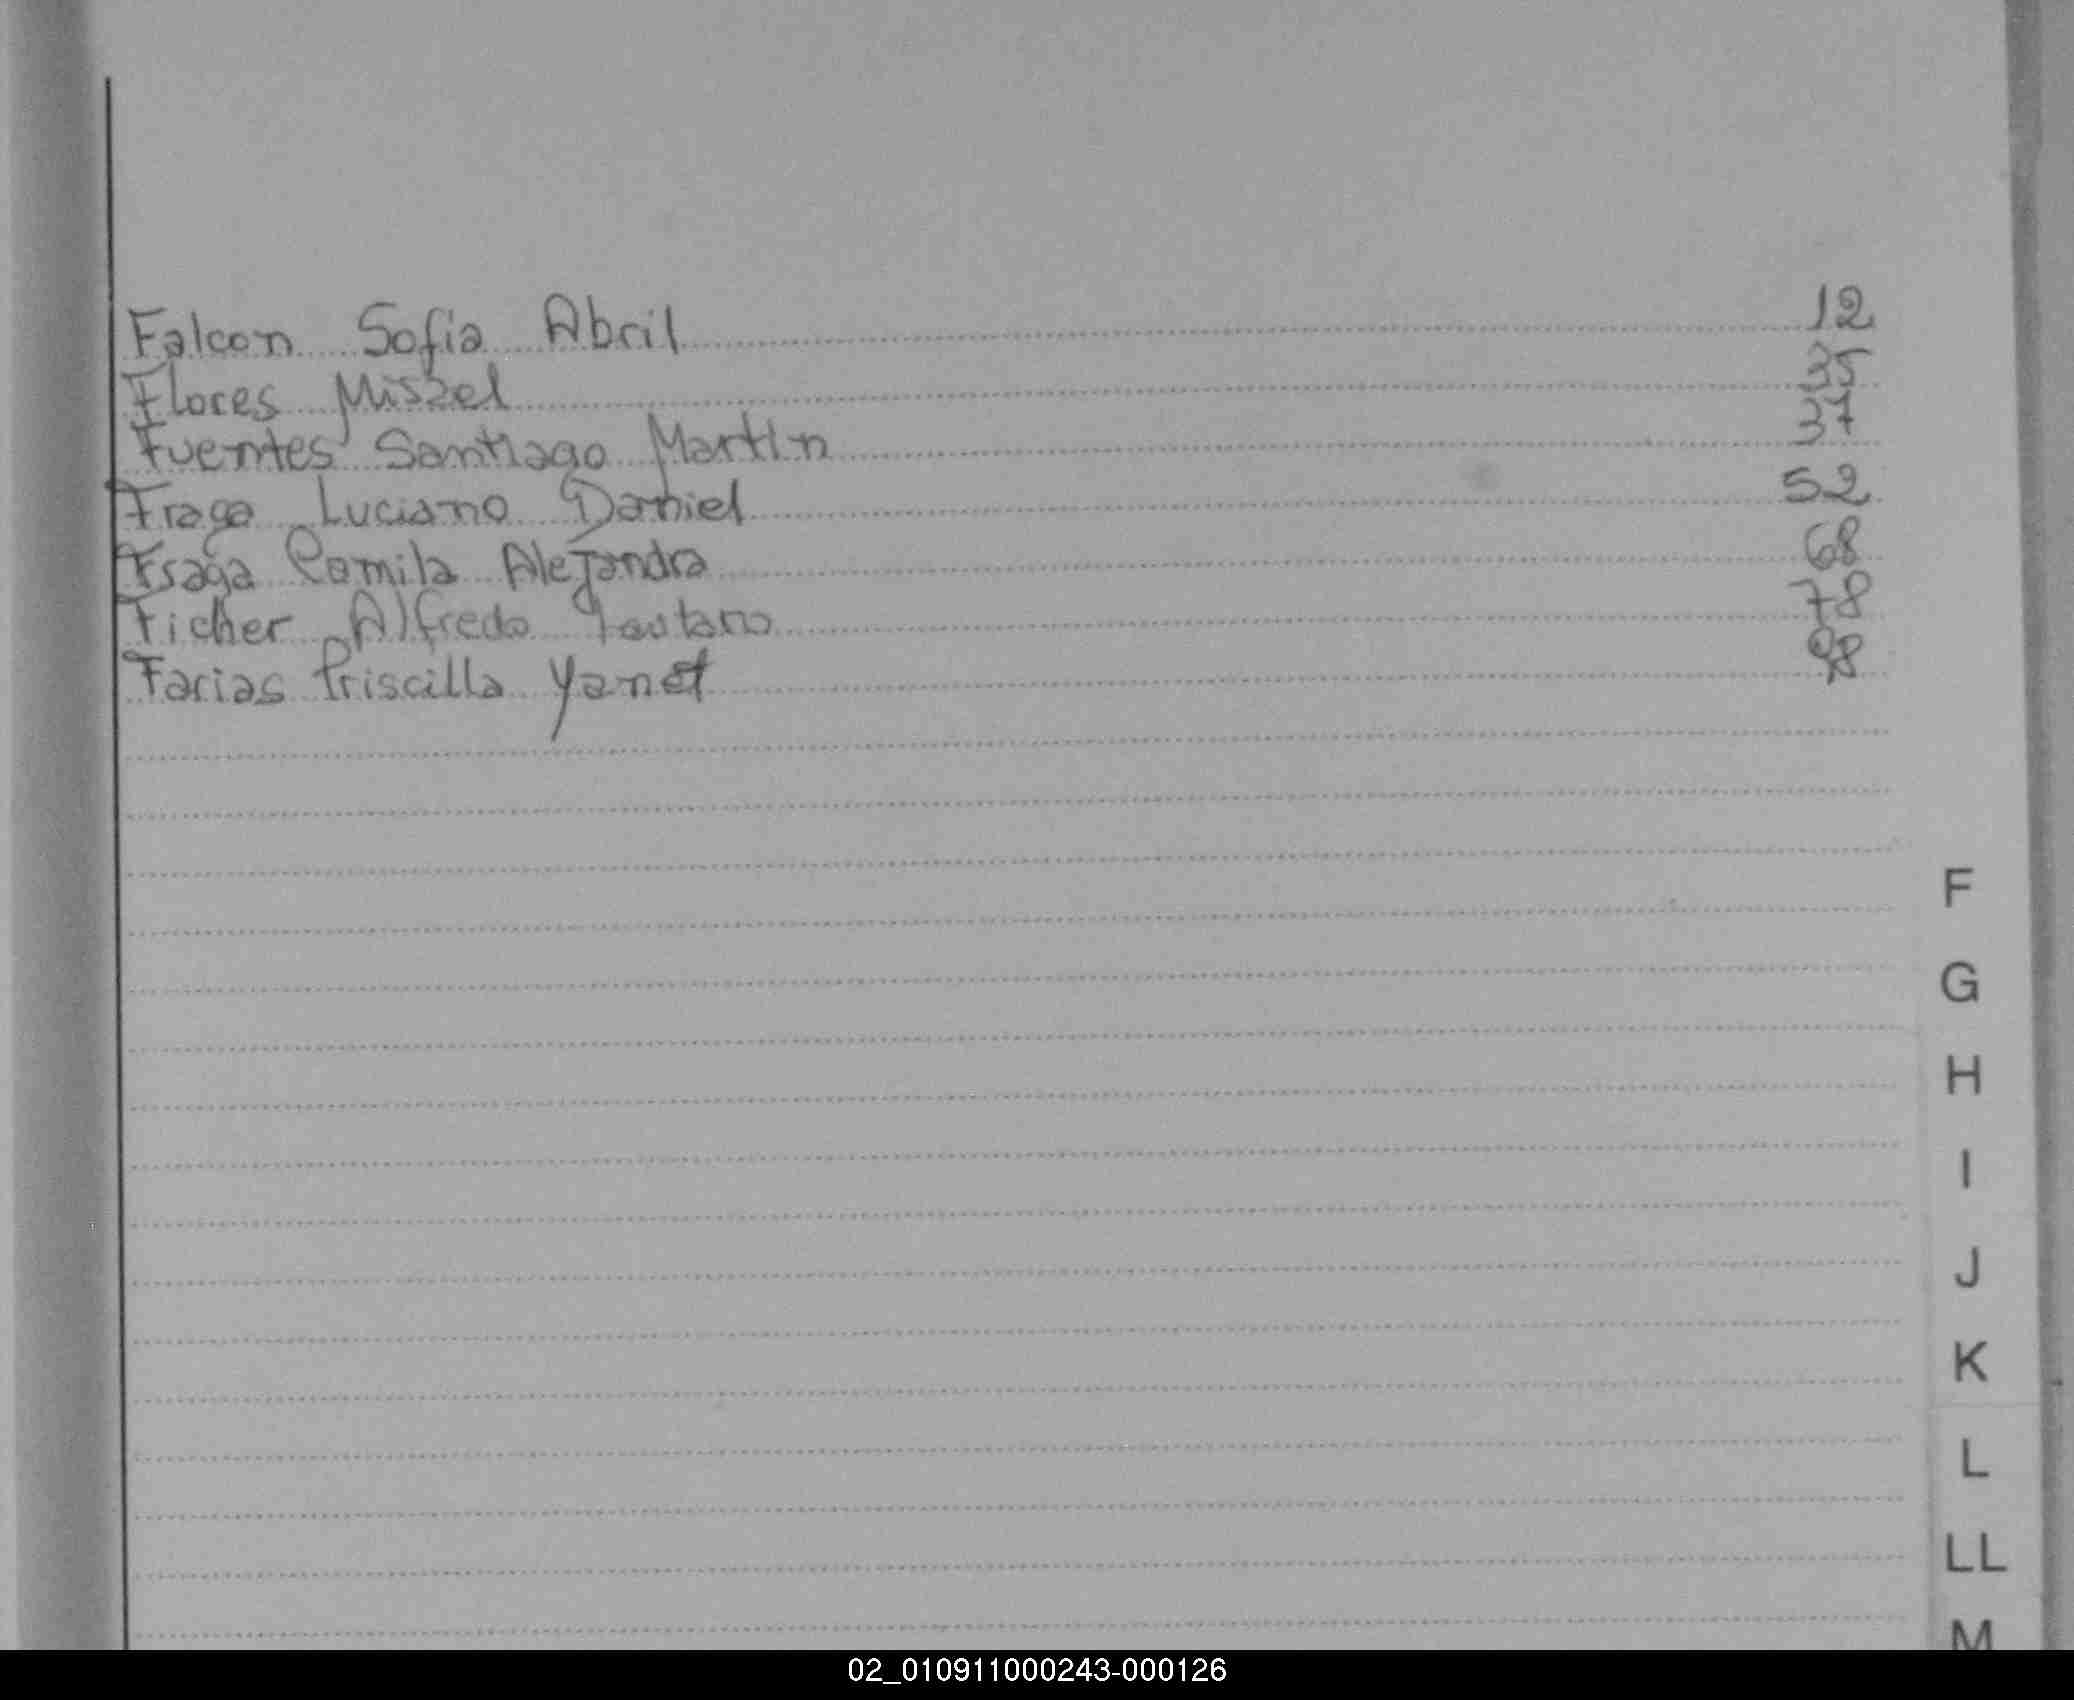 Falcon Sofia Abril 12
Flores Miszel 35
Fuentes Santiago Martin 37
Fraga Luciano Daniel 52
Fraga Camila Alejandra 68
Ficher Alfredo 78
Farias Priscilla Yanet 98
F
G
H
I
J
K
L
LL
M
02_010911000243-000126